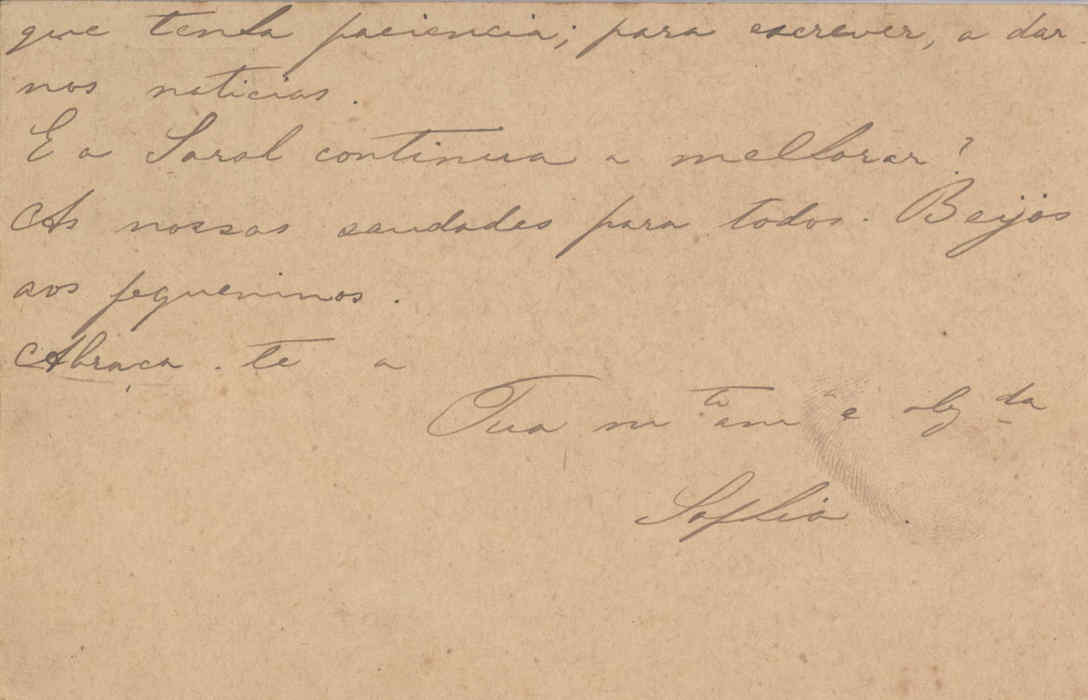 que tenha paciencia; para escrever, a dar-
nos noticias.
E a Sarah continua a melhorar?
As nossas saudades para todos. Beijos
aos pequeninos.
Abraça-te a
Tua mto ama e obgda
Sophia.